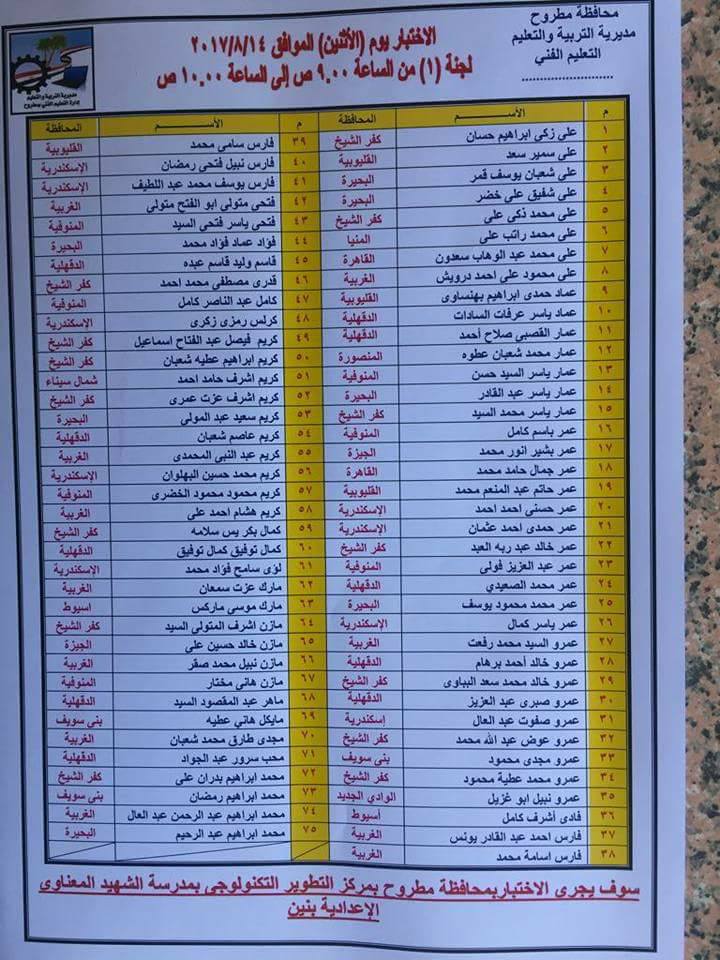 محافظة مطروح
مديرية التربية والتعليم
التعليم الفني
..........................
الاختبار يوم (الأثنين) الموافق ٢٠١٧/٨/١٤
لجنة (١) من الساعة ٩.٠٠ ص إلى الساعة ١٠.٠٠ ص
مديرية التربية والتعليم
إدارة التعليم الفني بمطروح
م الأســــم المحافظة
١ على زكى ابراهيم حسان كفر الشيخ
٢ على سمير سعد القليوبية
٣ على شعبان يوسف قمر البحيرة
٤ على شفيق على خضر الغربية
٥ على محمد ذكى على كفر الشيخ
٦ على محمد راتب على المنيا
٧ على محمد عبد الوهاب سعدون القاهرة
٨ على محمود على احمد درويش الغربية
٩ عماد حمدى ابراهيم بهنساوى القليوبية
١٠ عماد ياسر عرفات السادات الدقهلية
١١ عمار القصبي صلاح أحمد الدقهلية
١٢ عمار محمد شعبان عطوه المنصورة
١٣ عمار ياسر السيد حسن المنوفية
١٤ عمار ياسر عبد القادر البحيرة
١٥ عمار ياسر محمد السيد كفر الشيخ
١٦ عمر باسم كامل المنوفية
١٧ عمر بشير انور محمد الجيزة
١٨ عمر جمال حامد محمد القاهرة
١٩ عمر حاتم عبد المنعم محمد القليوبية
٢٠ عمر حسنى احمد احمد الإسكندرية
٢١ عمر حمدى احمد عثمان الإسكندرية
٢٢ عمر خالد عبد ربه العبد كفر الشيخ
٢٣ عمر عبد العزيز فولى المنوفية
٢٤ عمر محمد الصعيدي الدقهلية
٢٥ عمر محمد محمود يوسف البحيرة
٢٦ عمر ياسر كمال الإسكندرية
٢٧ عمرو السيد محمد رفعت الغربية
٢٨ عمرو خالد أحمد برهام الدقهلية
٢٩ عمرو خالد محمد سعد الببباوى كفر الشيخ
٣٠ عمرو صبرى عبد العزيز الدقهلية
٣١ عمرو صفوت عبد العال إسكندرية
٣٢ عمرو عوض عبد الله محمد كفر الشيخ
٣٣ عمرو مجدى محمود بنى سويف
٣٤ عمرو محمد عطية محمود كفر الشيخ
٣٥ عمرو نبيل ابو غزيل الوادي الجديد
٣٦ فادى أشرف كامل أسيوط
٣٧ فارس احمد عبد القادر يونس الغربية
٣٨ فارس اسامة محمد الغربية
م الأســــم المحافظة
٣٩ فارس سامى محمد القليوبية
٤٠ فارس نبيل فتحى رمضان الإسكندرية
٤١ فارس يوسف محمد عبد اللطيف الإسكندرية
٤٢ فتحى متولى ابو الفتح متولى الغربية
٤٣ فتحى ياسر فتحى السيد المنوفية
٤٤ فؤاد عماد فؤاد محمد البحيرة
٤٥ قاسم وليد قاسم عبده الدقهلية
٤٦ قدرى مصطفى محمد احمد كفر الشيخ
٤٧ كامل عبد الناصر كامل المنوفية
٤٨ كرلس رمزى زكرى الإسكندرية
٤٩ كريم فيصل عبد الفتاح اسماعيل كفر الشيخ
٥٠ كريم ابراهيم عطيه شعبان كفر الشيخ
٥١ كريم اشرف حامد احمد شمال سيناء
٥٢ كريم اشرف عزت عمرى كفر الشيخ
٥٣ كريم سعيد عبد المولى البحيرة
٥٤ كريم عاصم شعبان الدقهلية
٥٥ كريم عبد النبى المحمدى الغربية
٥٦ كريم محمد حسين البهلوان الإسكندرية
٥٧ كريم محمود محمود الخضرى المنوفية
٥٨ كريم هشام احمد على الغربية
٥٩ كمال بكر يس سلامه كفر الشيخ
٦٠ كمال توفيق كمال توفيق الدقهلية
٦١ لؤى سامح فؤاد محمد الإسكندرية
٦٢ مارك عزت سمعان الغربية
٦٣ مارك موسى ماركس اسيوط
٦٤ مازن اشرف المتولى السيد كفر الشيخ
٦٥ مازن خالد حسين على الجيزة
٦٦ مازن نبيل محمد صقر الغربية
٦٧ مازن هانى مختار المنوفية
٦٨ ماهر عبد المقصود السيد الدقهلية
٦٩ مايكل هاني عطيه بنى سويف
٧٠ مجدى طارق محمد شعبان الغربية
٧١ محب سرور عبد الجواد الدقهلية
٧٢ محمد ابراهيم بدران على كفر الشيخ
٧٣ محمد ابراهيم رمضان بنى سويف
٧٤ محمد ابراهيم عبد الرحمن عبد العال الغربية
٧٥ محمد ابراهيم عبد الرحيم البحيرة
سوف يجرى الاختباربمحافظة مطروح بمركز التطوير التكنولوجى بمدرسة الشهيد المعناوى
الإعدادية بنين